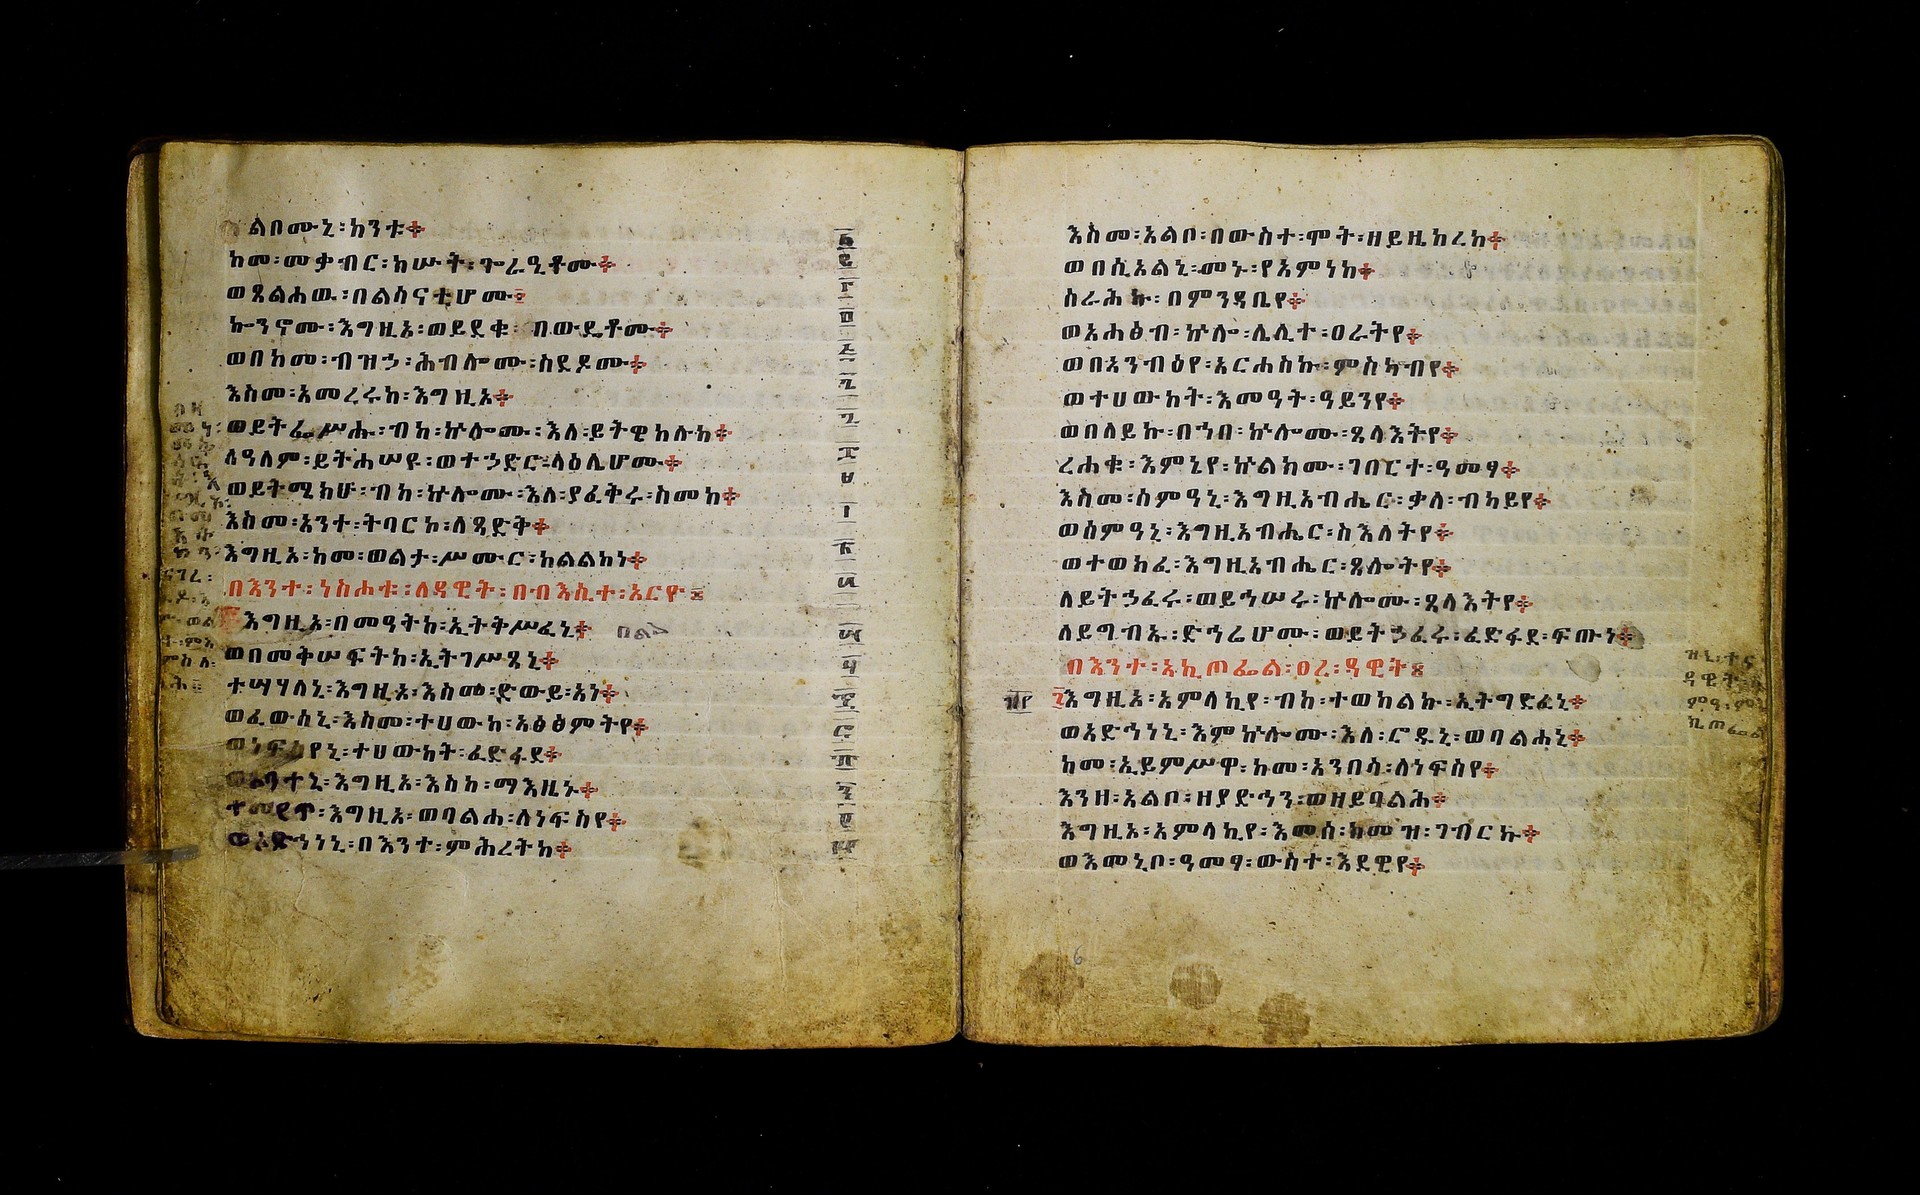 ልበሙኒ፡ከንቱ፨
ከመ፡መቃብር፡ከሡት፡ጐራዒቶሙ፨
ወጼልሐዉ፡በልሳናቲሆሙ፨
ኰንኖሙ፡እግዚኦ፡ወይደቁ፡በውዴቶሙ፨
ወበከመ፡ብዝኃ፡ሕብሎሙ፡ስደዶሙ፨
እስመ፡አመረሩከ፡እግዚኦ፨
ወይትፌሥሑ፡ብከ፡ኵሎሙ፡እለ፡ይትዌከሉከ፨
ለዓለም፡ይትሐሠዩ፡ወተኃድር፡ላዕሌሆሙ፨
ወይትሜክሁ፡ብከ፡ኵሎሙ፡እለ፡ያፈቅሩ፡ስመከ፨
እስመ፡አንተ፡ትባርኮ፡ለጻድቅ፨
እግዚኦ፡ከመ፡ወልታ፡ሥሙር፡ከልልከነ፨
በእንተ፡ነስሐቱ፡ለዳዊት፡በብእሲተ፡ኦርዮ፨
እግዚኦ፡በመዓትከ፡ኢትቅሥፈኒ፨ በልሃ
ወበመቅሠፍትከ፡ኢትገሥጸኒ፨
ተሣሃለኒ፡እግዚኦ፡እስመ፡ድውይ፡አነ፨
ወፈውሰኒ፡እስመ፡ተሀውከ፡አፅፅምትየ፨
ወነፍስየኒ፡ተሀውከት፡ፈድፋደ፨
ወአንተኒ፡እግዚኦ፡እስከ፡ማእዜኑ፨
ተመየጥ፡እግዚኦ፡ወባልሐ፡ለነፍስየ፨
ወአድኅነኒ፡በእንተ፡ምሕረትከ፨
እስመ፡አልቦ፡በውስተ፡ሞት፡ዘይዜከረከ፨
ወበሲኦልኒ፡መኑ፡የአምነከ፨
ስራሕኩ፡በምንዳቤየ፨
ወአሐፅብ፡ኵሎ፡ሌሊተ፡ዐራትየ፨
ወበአንብዕየ፡አርሐስኩ፡ምስካብየ፨
ወተሀውከት፡እመዓት፡ዓይንየ፨
ወበለይኩ፡በኀበ፡ኵሎሙ፡ጸላእትየ፨
ረሐቁ፡እምኔየ፡ኵልክሙ፡ገበርተ፡ዓመፃ፨
እስመ፡ሰምዓኒ፡እግዚአብሔር፡ቃለ፡ብካይየ፨
ወሰምዓኒ፡እግዚአብሔር፡ስእለትየ፨
ወተወክፈ፡እግዚአብሔር፡ጸሎትየ፨
ለይትኃፈሩ፡ወይኅሠሩ፡ኵሎሙ፡ጸላእትየ፨
ለይግብኡ፡ድኅሬሆሙ፡ወይትኃፈሩ፡ፈድፋደ፡ፍጡነ፨
በእንተ፡አኪጦፌል፡ዐረ፡ዳዊት፨
እግዚኦ፡አምላኪየ፡ብከ፡ተወከልኩ፡ኢትግድፈኒ፨
ወአድኅነኒ፡እምኵሎሙ፡እለ፡ሮዱኒ፡ወባልሐኒ፨
ከመ፡ኢይምሥዋ፡ከመ፡አንበሳ፡ለነፍስየ፨
እንዘ፡አልቦ፡ዘያድኅን፡ወዘይባልሕ፨
እግዚኦ፡አምላኪየ፡እመሰ፡ከመዝ፡ገብርኩ፨
ወእመኒቦ፡ዓመፃ፡ውስተ፡እደዊየ፨
6